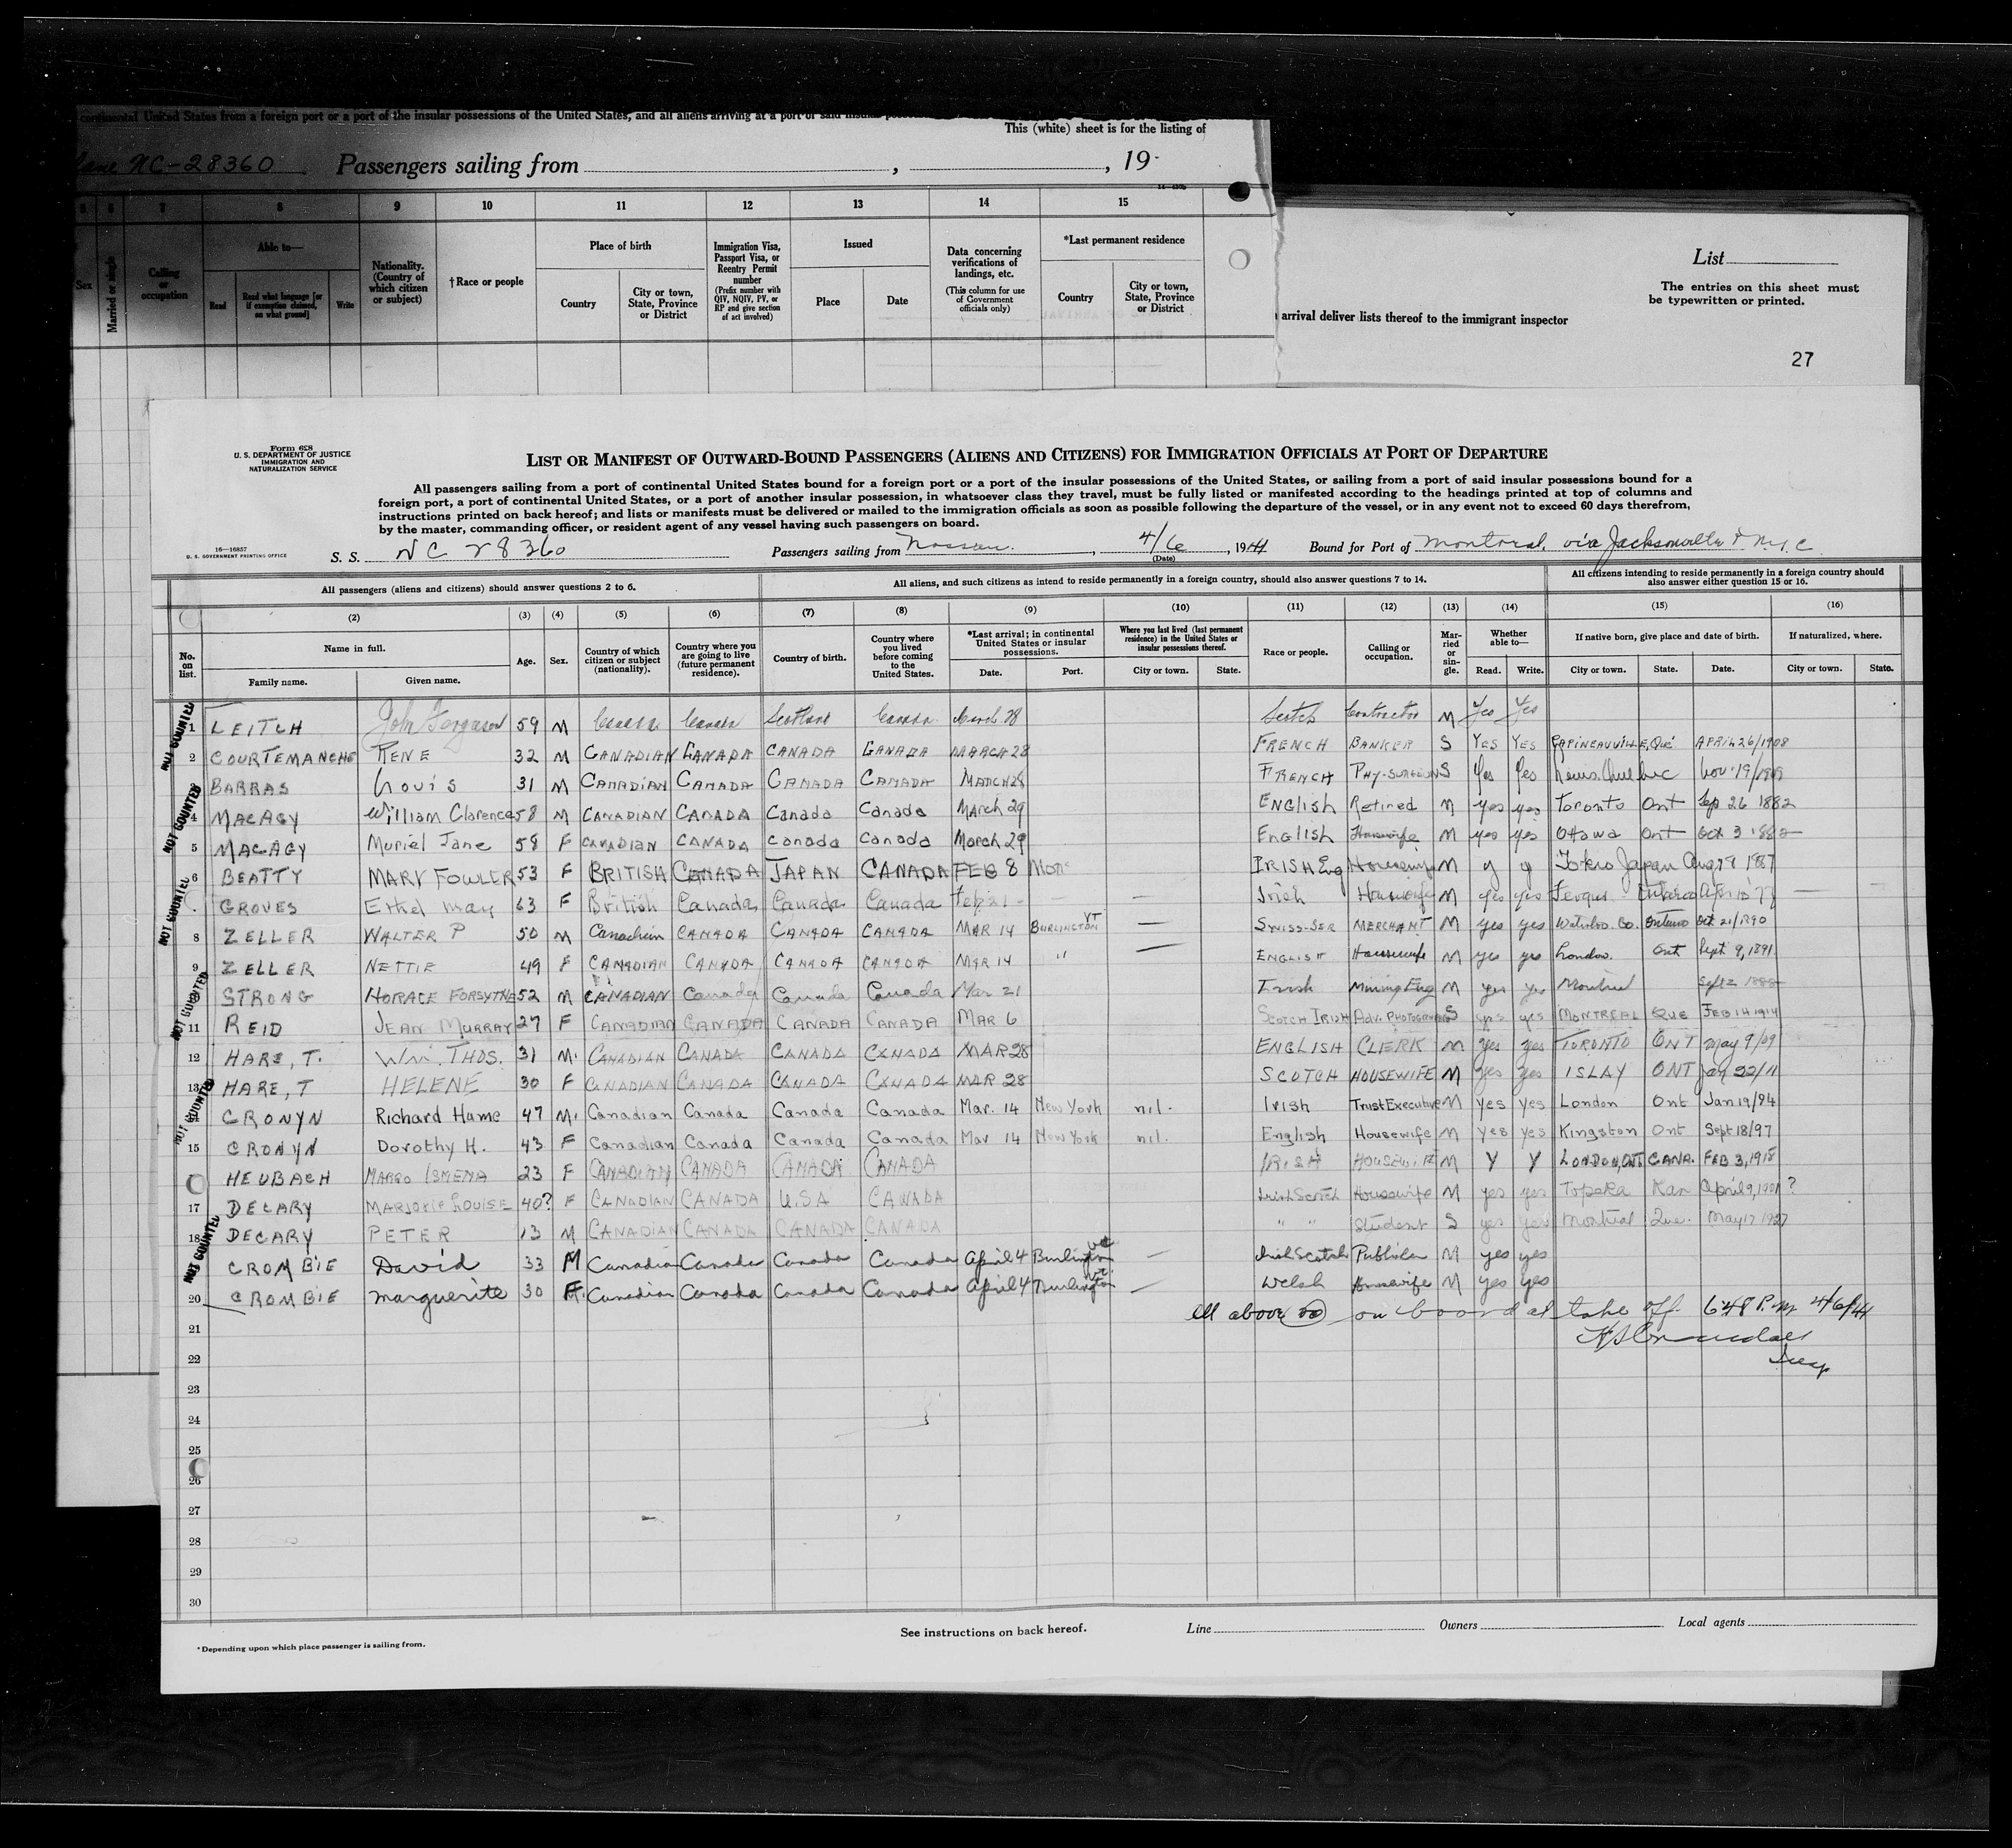 continental United States from a foreign port or a port of the insular possessions of the United States, and all aliens arriving at a port of said insular
This (white) sheet is for the listing of
NC-28360 Passengers sailing from , , 19
5 6 7 8 9 10 11 12 13 14 15
Sex
Married or single
Calling or occupation
Able to—
Read
Read what language [or if exemption claimed, on what ground]
Write
Nationality. (Country of which citizen or subject)
†Race or people
Place of birth
Country
City or town, State, Province or District
Immigration Visa, Passport Visa, or Reentry Permit number
(Prefix number with QIV, NQIV, PV, or RP and give section of act involved)
Issued
Place
Date
Data concerning verifications of landings, etc.
(This column for use of Government officials only)
*Last permanent residence
Country
City or town, State, Province or District
List
The entries on this sheet must be typewritten or printed.
arrival deliver lists thereof to the immigrant inspector
27
Form 628
U. S. DEPARTMENT OF JUSTICE
IMMIGRATION AND
NATURALIZATION SERVICE
LIST OR MANIFEST OF OUTWARD-BOUND PASSENGERS (ALIENS AND CITIZENS) FOR IMMIGRATION OFFICIALS AT PORT OF DEPARTURE
All passengers sailing from a port of continental United States bound for a foreign port or a port of the insular possessions of the United States, or sailing from a port of said insular possessions bound for a
foreign port, a port of continental United States, or a port of another insular possession, in whatsoever class they travel, must be fully listed or manifested according to the headings printed at top of columns and
instructions printed on back hereof; and lists or manifests must be delivered or mailed to the immigration officials as soon as possible following the departure of the vessel, or in any event not to exceed 60 days therefrom,
by the master, commanding officer, or resident agent of any vessel having such passengers on board.
16—16857
U. S. GOVERNMENT PRINTING OFFICE
S. S. NC 28360 Passengers sailing from Nassau. , 4/6 , 1944 Bound for Port of Montreal, via Jacksonville & N.Y.C.
(Date)
All passengers (aliens and citizens) should answer questions 2 to 6.
All aliens, and such citizens as intend to reside permanently in a foreign country, should also answer questions 7 to 14.
All citizens intending to reside permanently in a foreign country should also answer either question 15 or 16.
(2) (3) (4) (5) (6) (7) (8) (9) (10) (11) (12) (13) (14) (15) (16)
No. on list.
Name in full.
Family name.
Given name.
Age.
Sex.
Country of which citizen or subject (nationality).
Country where you are going to live (future permanent residence).
Country of birth.
Country where you lived before coming to the United States.
*Last arrival; in continental United States or insular possessions.
Date.
Port.
Where you last lived (last permanent residence) in the United States or insular possessions thereof.
City or town.
State.
Race or people.
Calling or occupation.
Married or single.
Whether able to—
Read.
Write.
If native born, give place and date of birth.
City or town.
State.
Date.
If naturalized, where.
City or town.
State.
NOT COUNTED
1 LEITCH John Ferguson 59 M Canada Canada Scotland Canada March 28 Scotch Contractor M Yes Yes
2 COURTEMANCHE RENE 32 M CANADIAN CANADA CANADA CANADA MARCH 28 FRENCH BANKER S YES YES PAPINEAUVILLE, Que APRIL 26/1908
3 BARRAS Louis 31 M CANADIAN CANADA CANADA CANADA MARCH 28 FRENCH PHY-SURGEON S Yes Yes Levis. Quebec Nov 19/1909
NOT COUNTED
4 MACAGY William Clarence 58 M CANADIAN CANADA Canada Canada March 29 ENGLISH Retired M yes yes Toronto Ont Sep 26 1882
5 MACAGY Muriel Jane 58 F CANADIAN CANADA Canada Canada March 29 ENGLISH Housewife M yes yes Ottawa Ont Oct 3 1882
6 BEATTY MARY FOWLER 53 F BRITISH CANADA JAPAN CANADA FEB 8 IRISH Eng Housewife M y y Tokio Japan Aug 1887
NOT COUNTED
GROVES Ethel May 63 F British Canada Canada Canada Feb 21 — — Irish Housewife M yes yes Fergus Ontario — —
8 ZELLER WALTER P 50 M Canadian CANADA CANADA CANADA MAR 14 BURLINGTON VT — SWISS-GER MERCHANT M yes yes Waterloo Co. Ontario Oct 21/1890
9 ZELLER NETTIE 49 F CANADIAN CANADA CANADA CANADA MAR 14 " — ENGLISH Housewife M yes yes London. Ont Sept 9, 1891
NOT COUNTED
STRONG HORACE FORSYTHE 52 M CANADIAN Canada Canada Canada Mar 21 Irish Mining Eng M yes yes Montreal Sept 2
11 REID JEAN MURRAY 27 F CANADIAN CANADA CANADA CANADA MAR 6 SCOTCH IRISH ADV. PHOTOGRAPHER S yes yes MONTREAL QUE FEB 14 1914
12 HARE, T. Wm. THOS. 31 M. CANADIAN CANADA CANADA CANADA MAR 28 ENGLISH CLERK M yes yes TORONTO ONT May 9/09
13 HARE, T HELENE 30 F CANADIAN CANADA CANADA CANADA MAR 28 SCOTCH HOUSEWIFE M yes yes ISLAY ONT Jan 22/11
NOT COUNTED
CRONYN Richard Hume 47 M. Canadian Canada Canada Canada Mar. 14 New York nil. Irish Trust Executive M yes yes London Ont Jan 19/94
15 CRONYN Dorothy H. 43 F Canadian Canada Canada Canada Mar 14 New York nil. English Housewife M yes yes Kingston Ont Sept 18/97
HEUBACH MARGO ISMENA 23 F CANADIAN CANADA CANADA CANADA IRISH HOUSEWIFE M Y Y LONDON, ONT. CANA. FEB 3, 1918
17 DECARY MARJORIE LOUISE 40? F CANADIAN CANADA U.S.A CANADA Irish Scotch Housewife M yes yes Topeka Kan April 9, 1901 ?
18 DECARY PETER 13 M CANADIAN CANADA CANADA CANADA " " Student S yes yes Montreal Que. May 17 1927
NOT COUNTED
CROMBIE David 33 M Canadian Canada Canada Canada April 4 Burlington vt — Irish Scotch Publisher M yes yes
20 CROMBIE Marguerite 30 F. Canadian Canada Canada Canada April 4 Burlington vt. — Welsh Housewife M yes yes
All above (20) on board at take off 6:48 P.M 4/6/44
21
22
23
24
25
26
27
28
29
30
*Depending upon which place passenger is sailing from.
See instructions on back hereof.
Line
Owners
Local agents